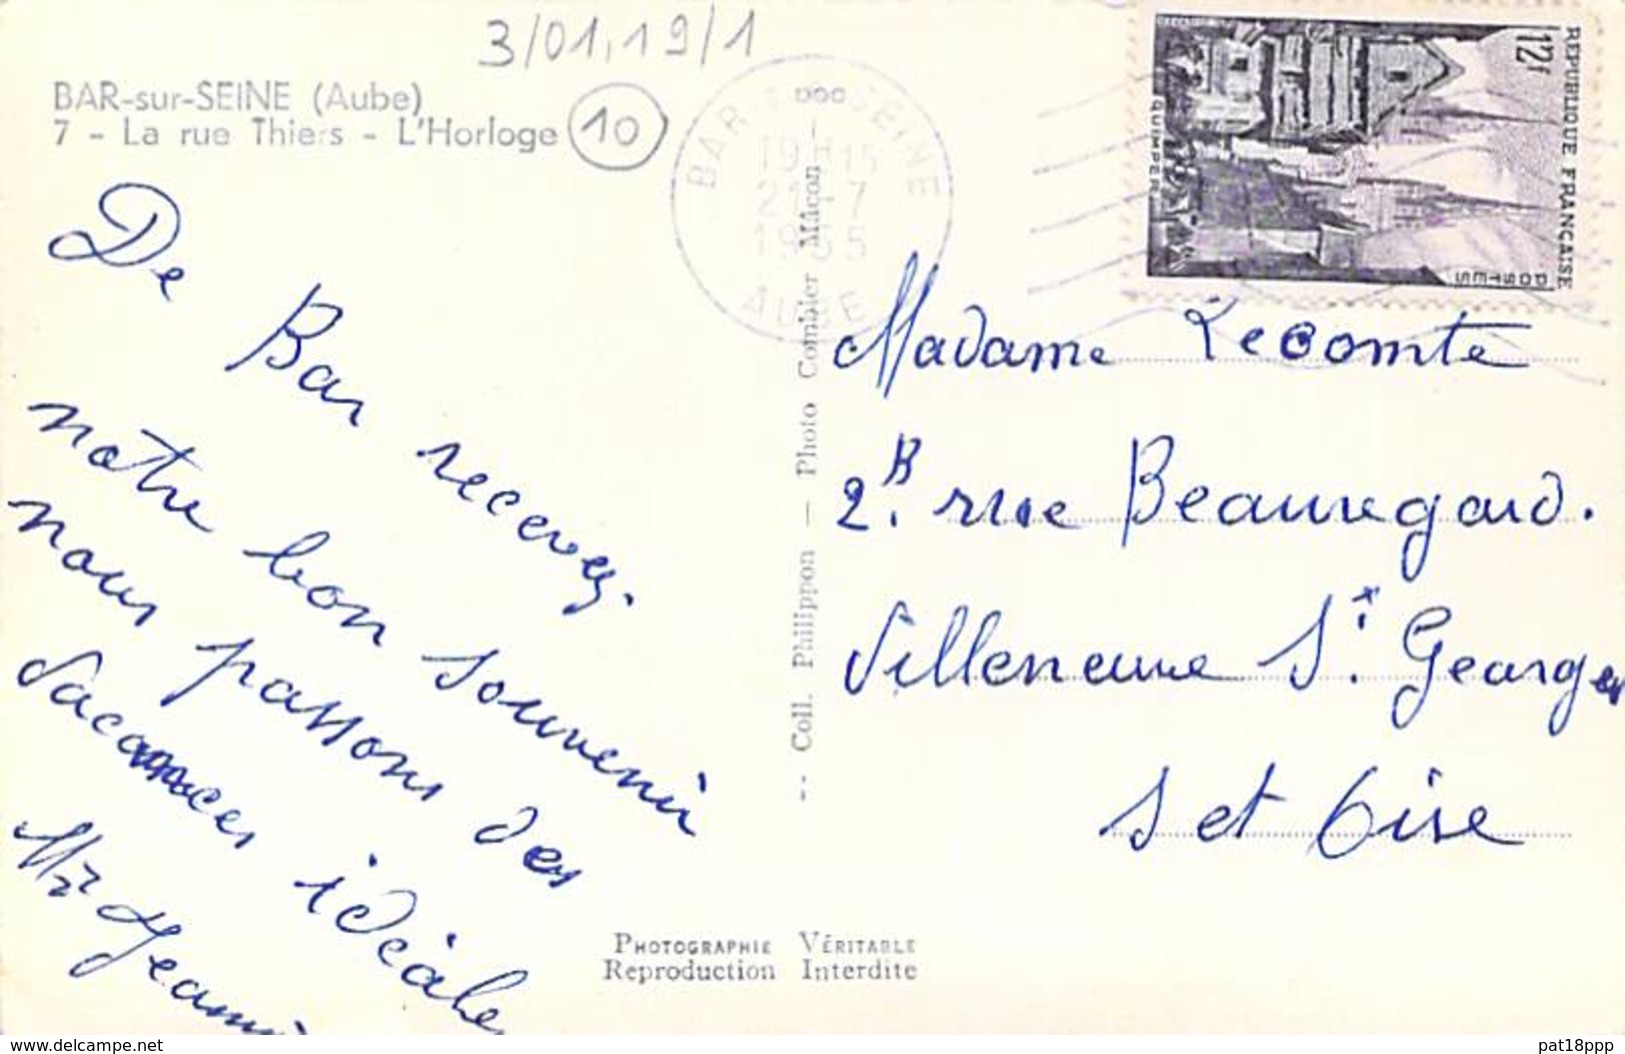 3/01,19/1
BAR-sur-SEINE (Aube)
7 - La rue Thiers - L'Horloge
10
BAR SEINE
21-7
AUBE
REPUBLIQUE FRANÇAISE
12f
POSTES
QUIMPER
De Bar recevez
notre bon souvenir
nous passons des
vacances idéale
-- Coll. Philippon — Photo Combier Mâcon —
Madame Lecomte
2B. rue Beauregard.
Villeneuve St. Georges
S et Oise
PHOTOGRAPHIE VÉRITABLE
Reproduction Interdite
www.delcampe.net
pat18ppp